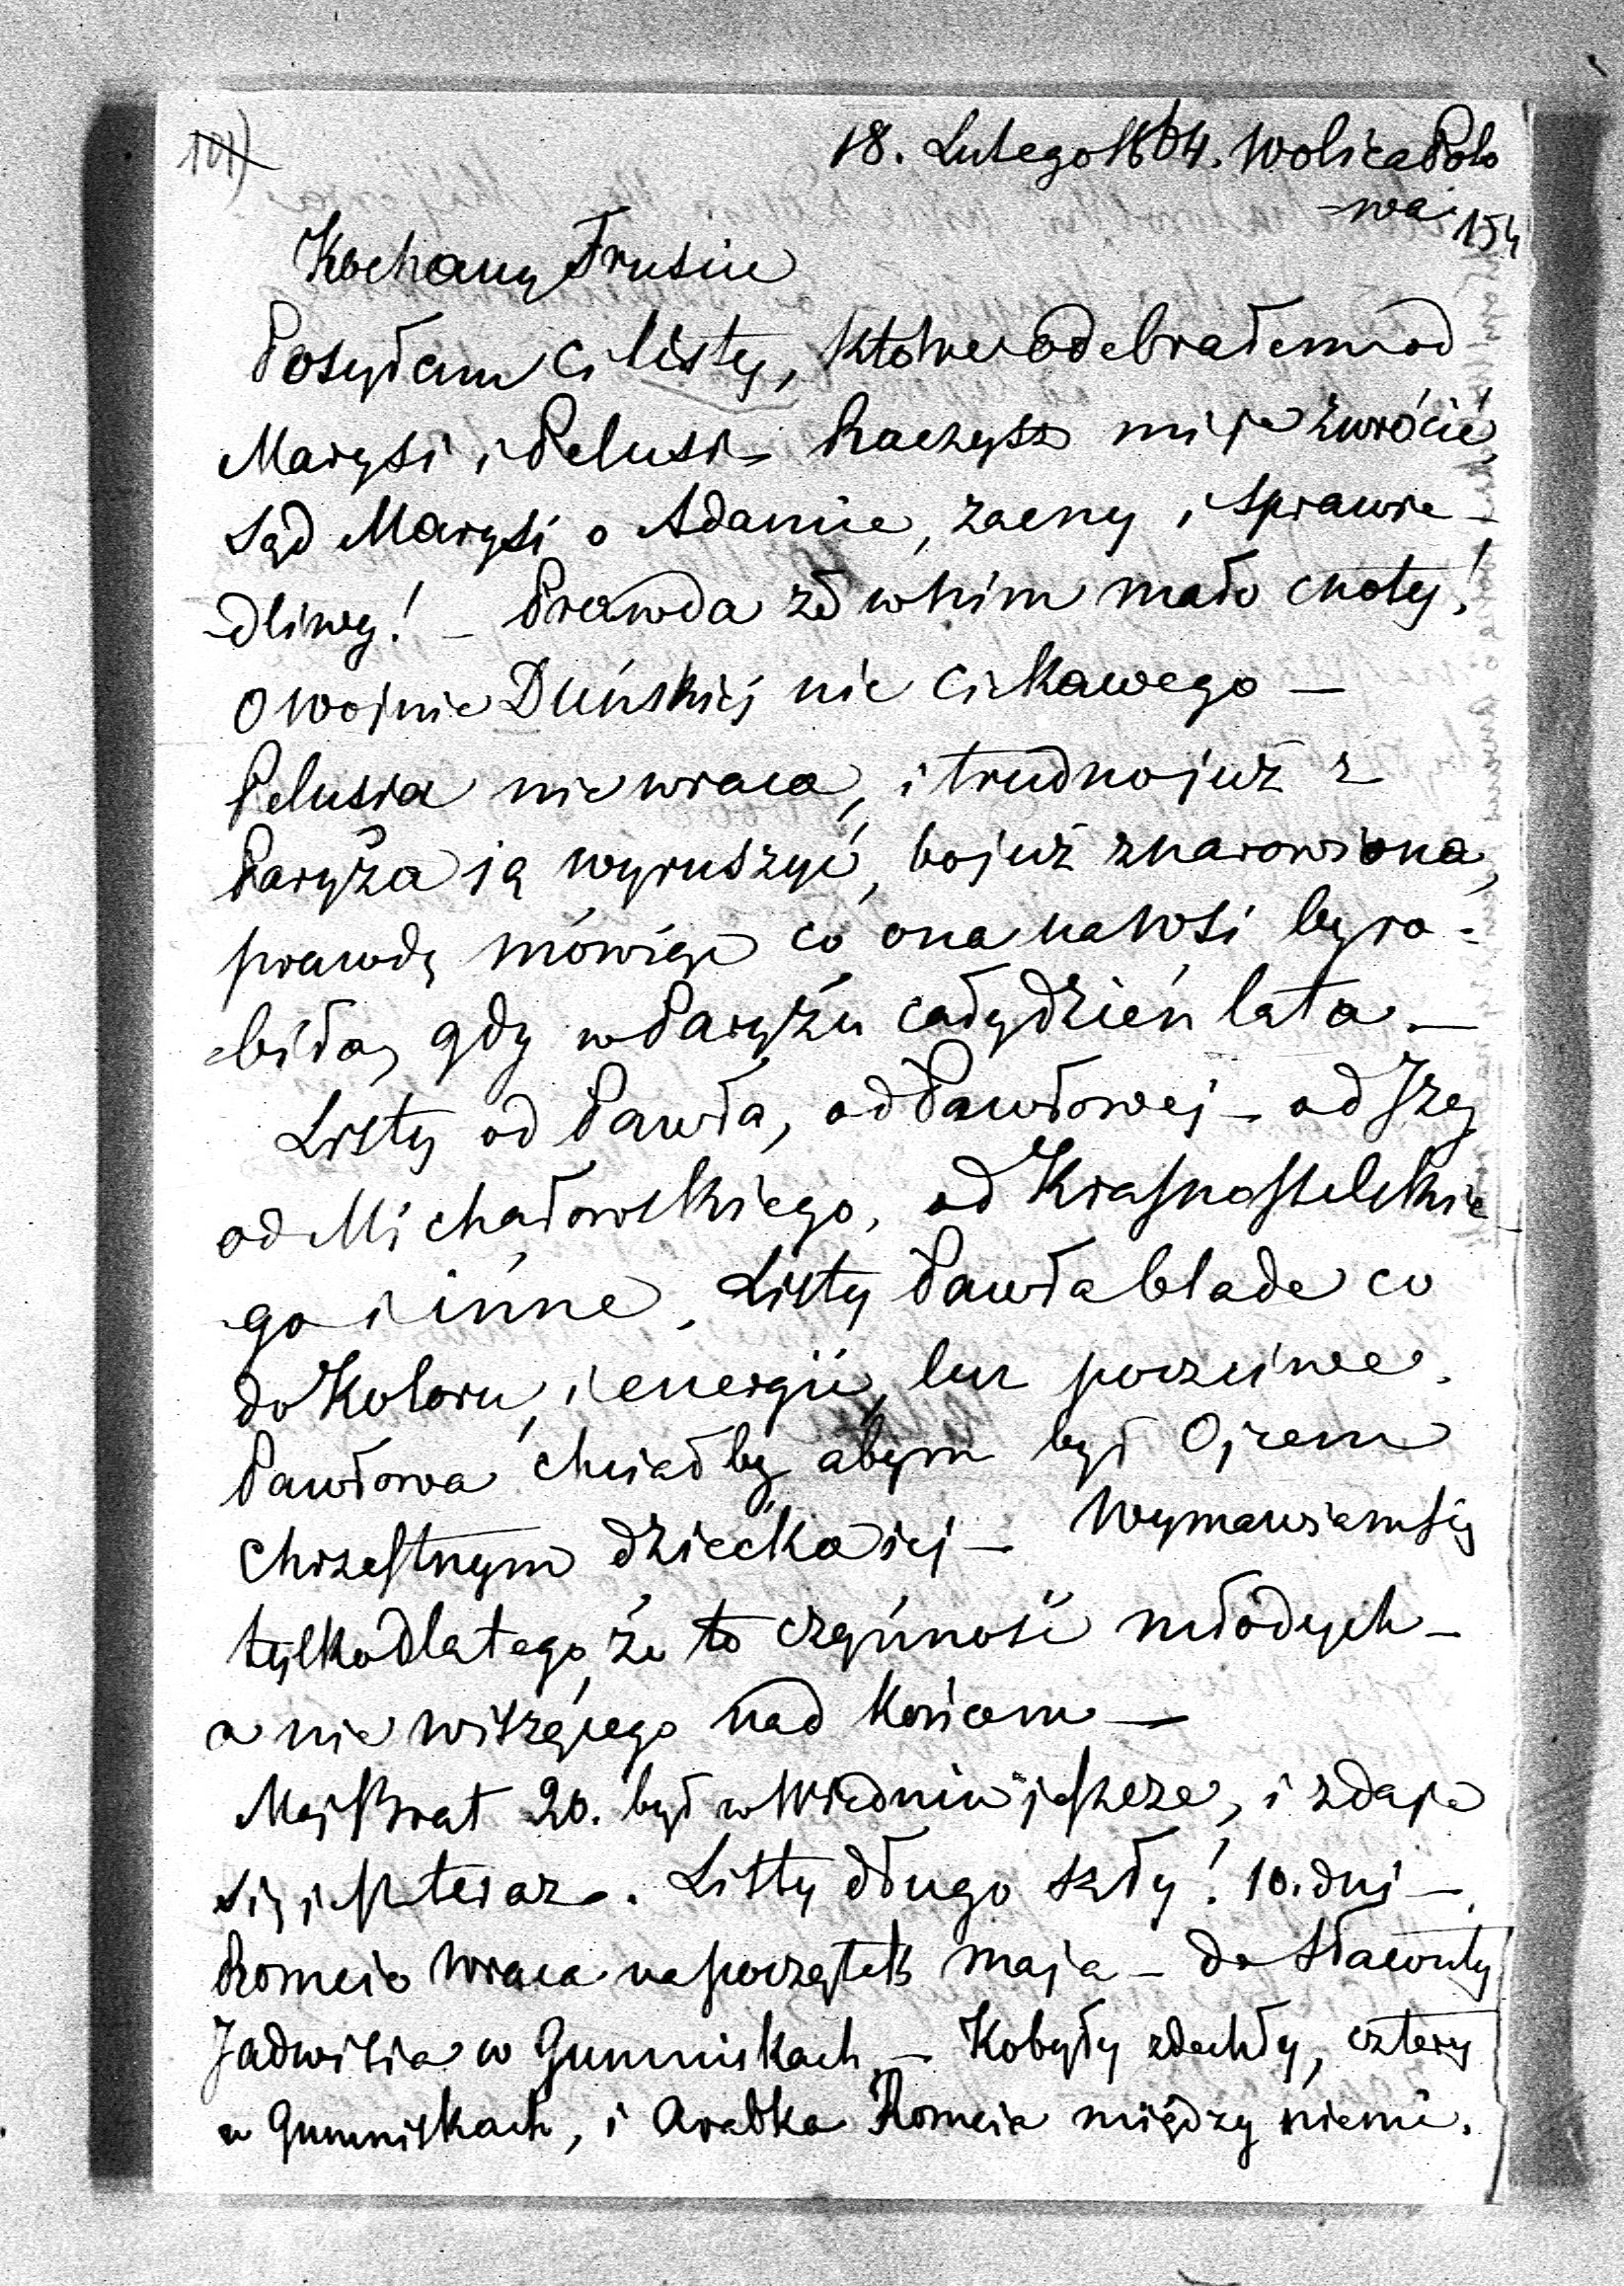 101)
18. Lutego 1864. Wolica Polo
-wa 154
Kochany Frusiu
Posyłam ci listy, które odebrałem od
Marysi i Pelusi – Raczysz mi je zwrócić,
Sąd Marysi o Adamie, zacny i sprawie-
-dliwy! – Prawda że w nim mało cnoty!
O wojnie Duńskiej nic ciekawego –
Pelusia nie wraca, i trudno już z
Paryża ją wyruszyć, bo już znarowiona,
prawdę mówiąc co ona na wsi by ro-
-biła, gdy w Paryżu cały dzień lata –
Listy od Pawła, od Pawłowej – od Izy
od Michałowskiego, od Krasnosielskie-
-go i inne. Listy Pawła blade co
do Koloru, i energii, lecz poczciwe.
Pawłowa chciałby abym był Ojcem
chrzestnym dziecka jej – Wymawiam się
tylko dlatego, że to czynność młodych –
a nie wiszącego nad Końcem –
Mój Brat 20. był w Wiedniu jeszcze, i zdaje
się jest teraz. Listy długo szły! 10. dni –
Romcio wraca na początek maja – do Sławuty
Jadwisia w Gumniskach – Kobyły zdechły, cztery
w Gumniskach, i Arabka Romcia między niemi.